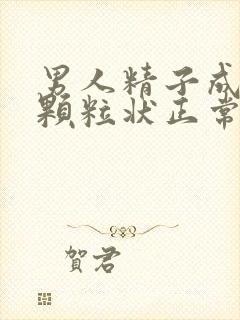 男人精子成
顆粒狀正常
賀君